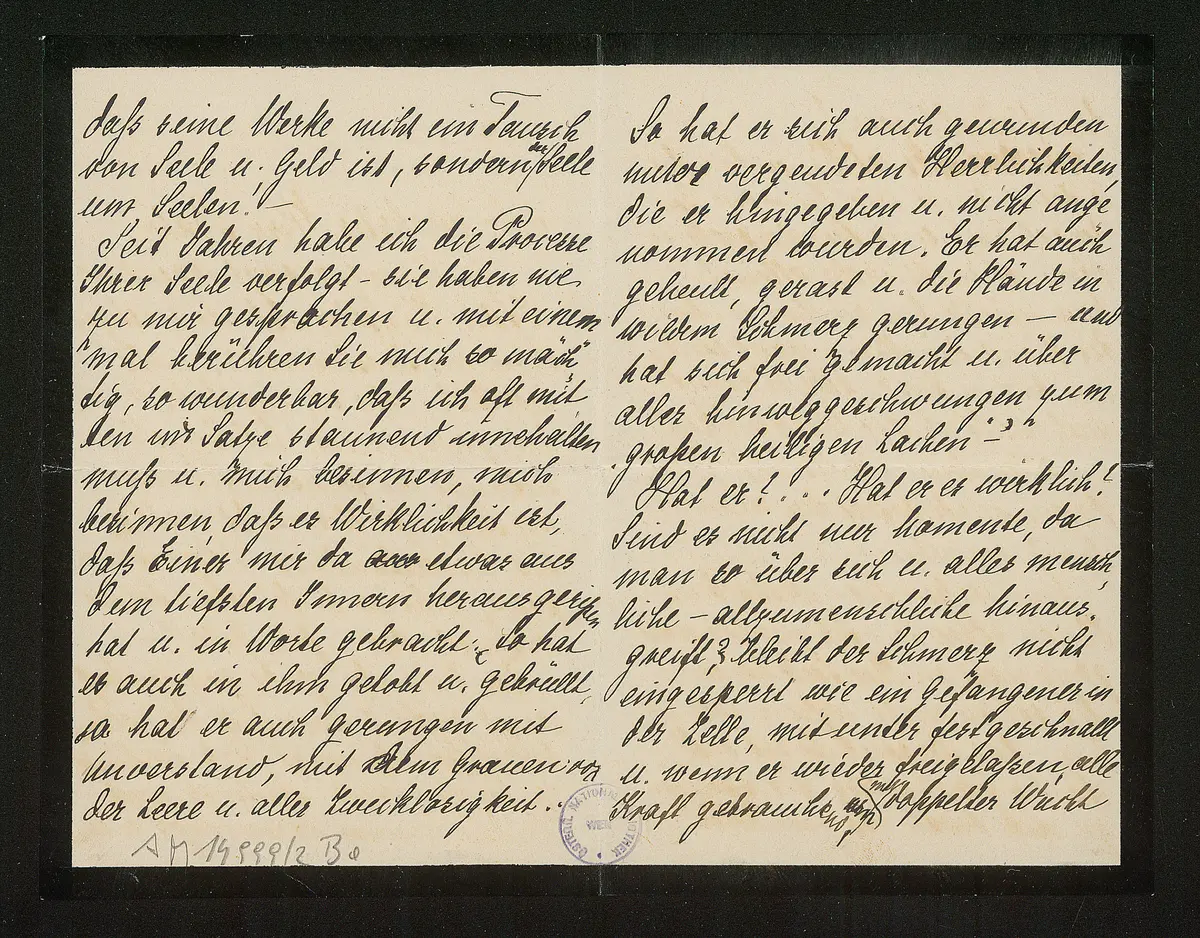 daß seine Werke nicht ein Tausch
von Seele u. Geld ist, sondern der Seele
um Seelen. –
Seit Jahren habe ich die Processe
Ihrer Seele verfolgt – sie haben nie
zu mir gesprochen u. mit einem
mal berühren Sie mich so mäch
tig, so wunderbar, daß ich oft mit
ten im Satze staunend innehalten
muß u. mich besinnen, mich
besinnen, daß es Wirklichkeit ist,
daß Einer mir da aus etwas aus
dem tiefsten Innern herausgerißen
hat u. in Worte gebracht: so hat
es auch in ihm getobt u. gebrüllt,
so hat er auch gerungen mit
Unverstand, mit dem Grauen vor
der Leere u. aller Zwecklosigkeit..
So hat er sich auch gewunden
unter vergeudeten Herrlichkeiten,
die er hingegeben u. nicht ange
nommen wurden. Er hat auch
geheult, gerast u. die Hände in
wildem Schmerz gerungen – und
hat sich frei gemacht u. über
alles hinweggeschwungen zum
„großen heiligen Lachen“ – ?
Hat er? ... Hat er es wirklich?
Sind es nicht nur Momente, da
man so über sich u. alles mensch
liche – allzumenschliche hinaus-
greift? Bleibt der Schmerz nicht
eingesperrt wie ein Gefangener in
der Zelle, mitunter festgeschnallt
u. wenn er wieder freigelaßen, alle
Kraft gebrauchend, um mit doppelter Wucht
AM 14999/2 Be
ÖSTERR. NATIONALBIBLIOTHEK
WIEN